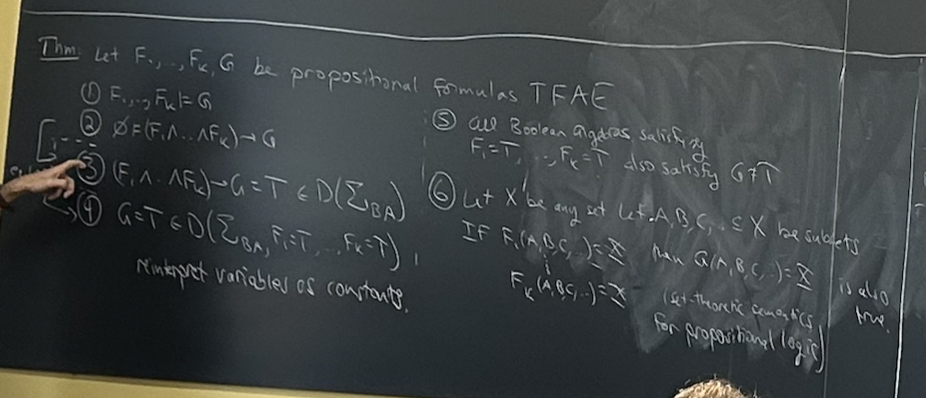 Thm: Let F₁,..,Fₖ,G be propositional formulas TFAE
① F₁,..,Fₖ ⊨ G
② ∅ ⊨ (F₁∧..∧Fₖ)→G
③ (F₁∧..∧Fₖ)→G=T ∈ D(Σ_BA)
④ G=T ∈ D(Σ_BA, F₁=T,..,Fₖ=T),
reinterpret variables as constants.
⑤ all Boolean algebras satisfying
F₁=T,..,Fₖ=T also satisfy G=T
⑥ Let X be any set Let A,B,C,.. ⊆ X be subsets
IF F₁(A,B,C,..)=X then G(A,B,C,..)=X is also true.
⋮
Fₖ(A,B,C,..)=X
(set-theoretic semantics
for propositional logic)